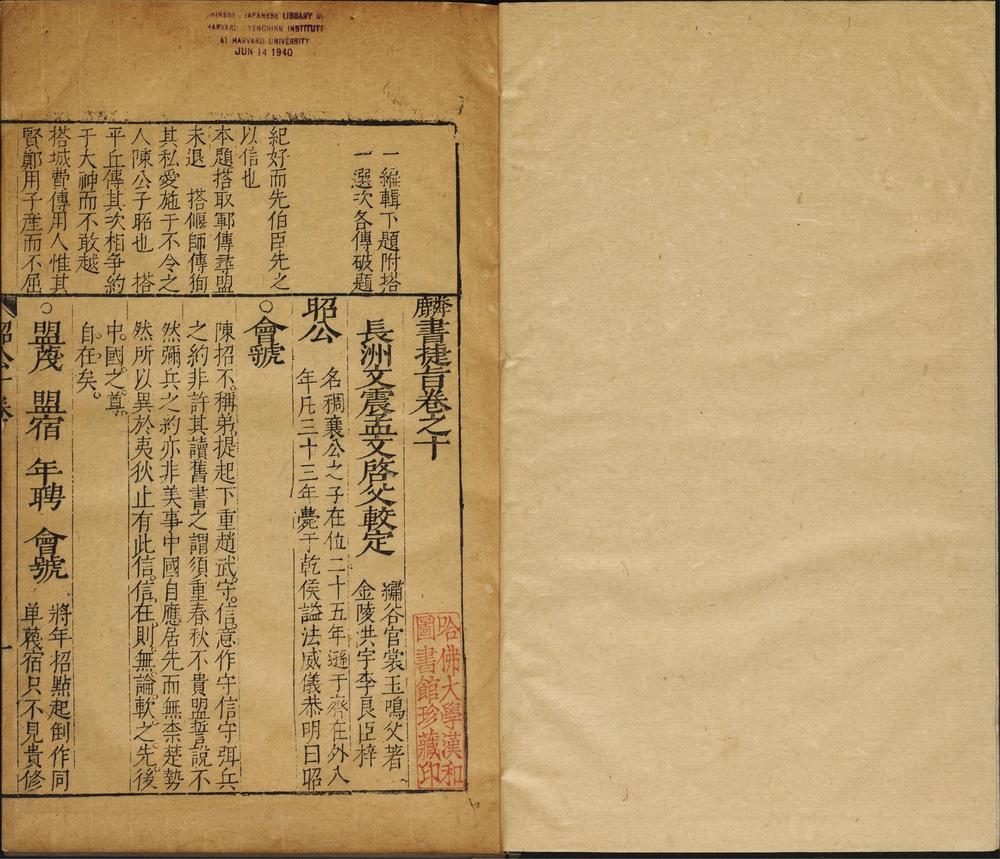 CHINESE-JAPANESE LIBRARY OF
HARVARD-YENCHING INSTITUTE
AT HARVARD UNIVERSITY
JUN 14 1940
一編輯下題附搭
一選次各傳破題
紀好而先伯臣先之
以信也
本題搭取鄆傳尋盟
未退 搭偃師傳徇
其私愛施于不令之
人陳公子昭也 搭
平丘傳其次相争約
于大神而不敢越
搭城費傳用人惟其
賢鄭用子産而不屈
麟書捷旨卷之十
繡谷官裳玉鳴父著
長洲文震孟文啓父較定
金陵洪宇李良臣梓
昭公
名稠襄公之子在位二十五年遜于齊在外八
年凡三十三年薨于乾侯謚法威儀恭明曰昭
○會虢
陳招不稱弟提起下重趙武守信意作守信守弭兵
之約非許其讀舊書之謂須重春秋不貴盟誓說不
然彌兵之約亦非美事中國自應居先而無柰楚勢
然所以異於夷狄止有此信信在則無論歃之先後
中國之尊
自在矣
○盟蔑 盟宿 年聘 會虢
將年招點起倒作同
单蔑宿只不見貴修
昭公十卷
一
哈佛大學漢和
圖書館珍藏印